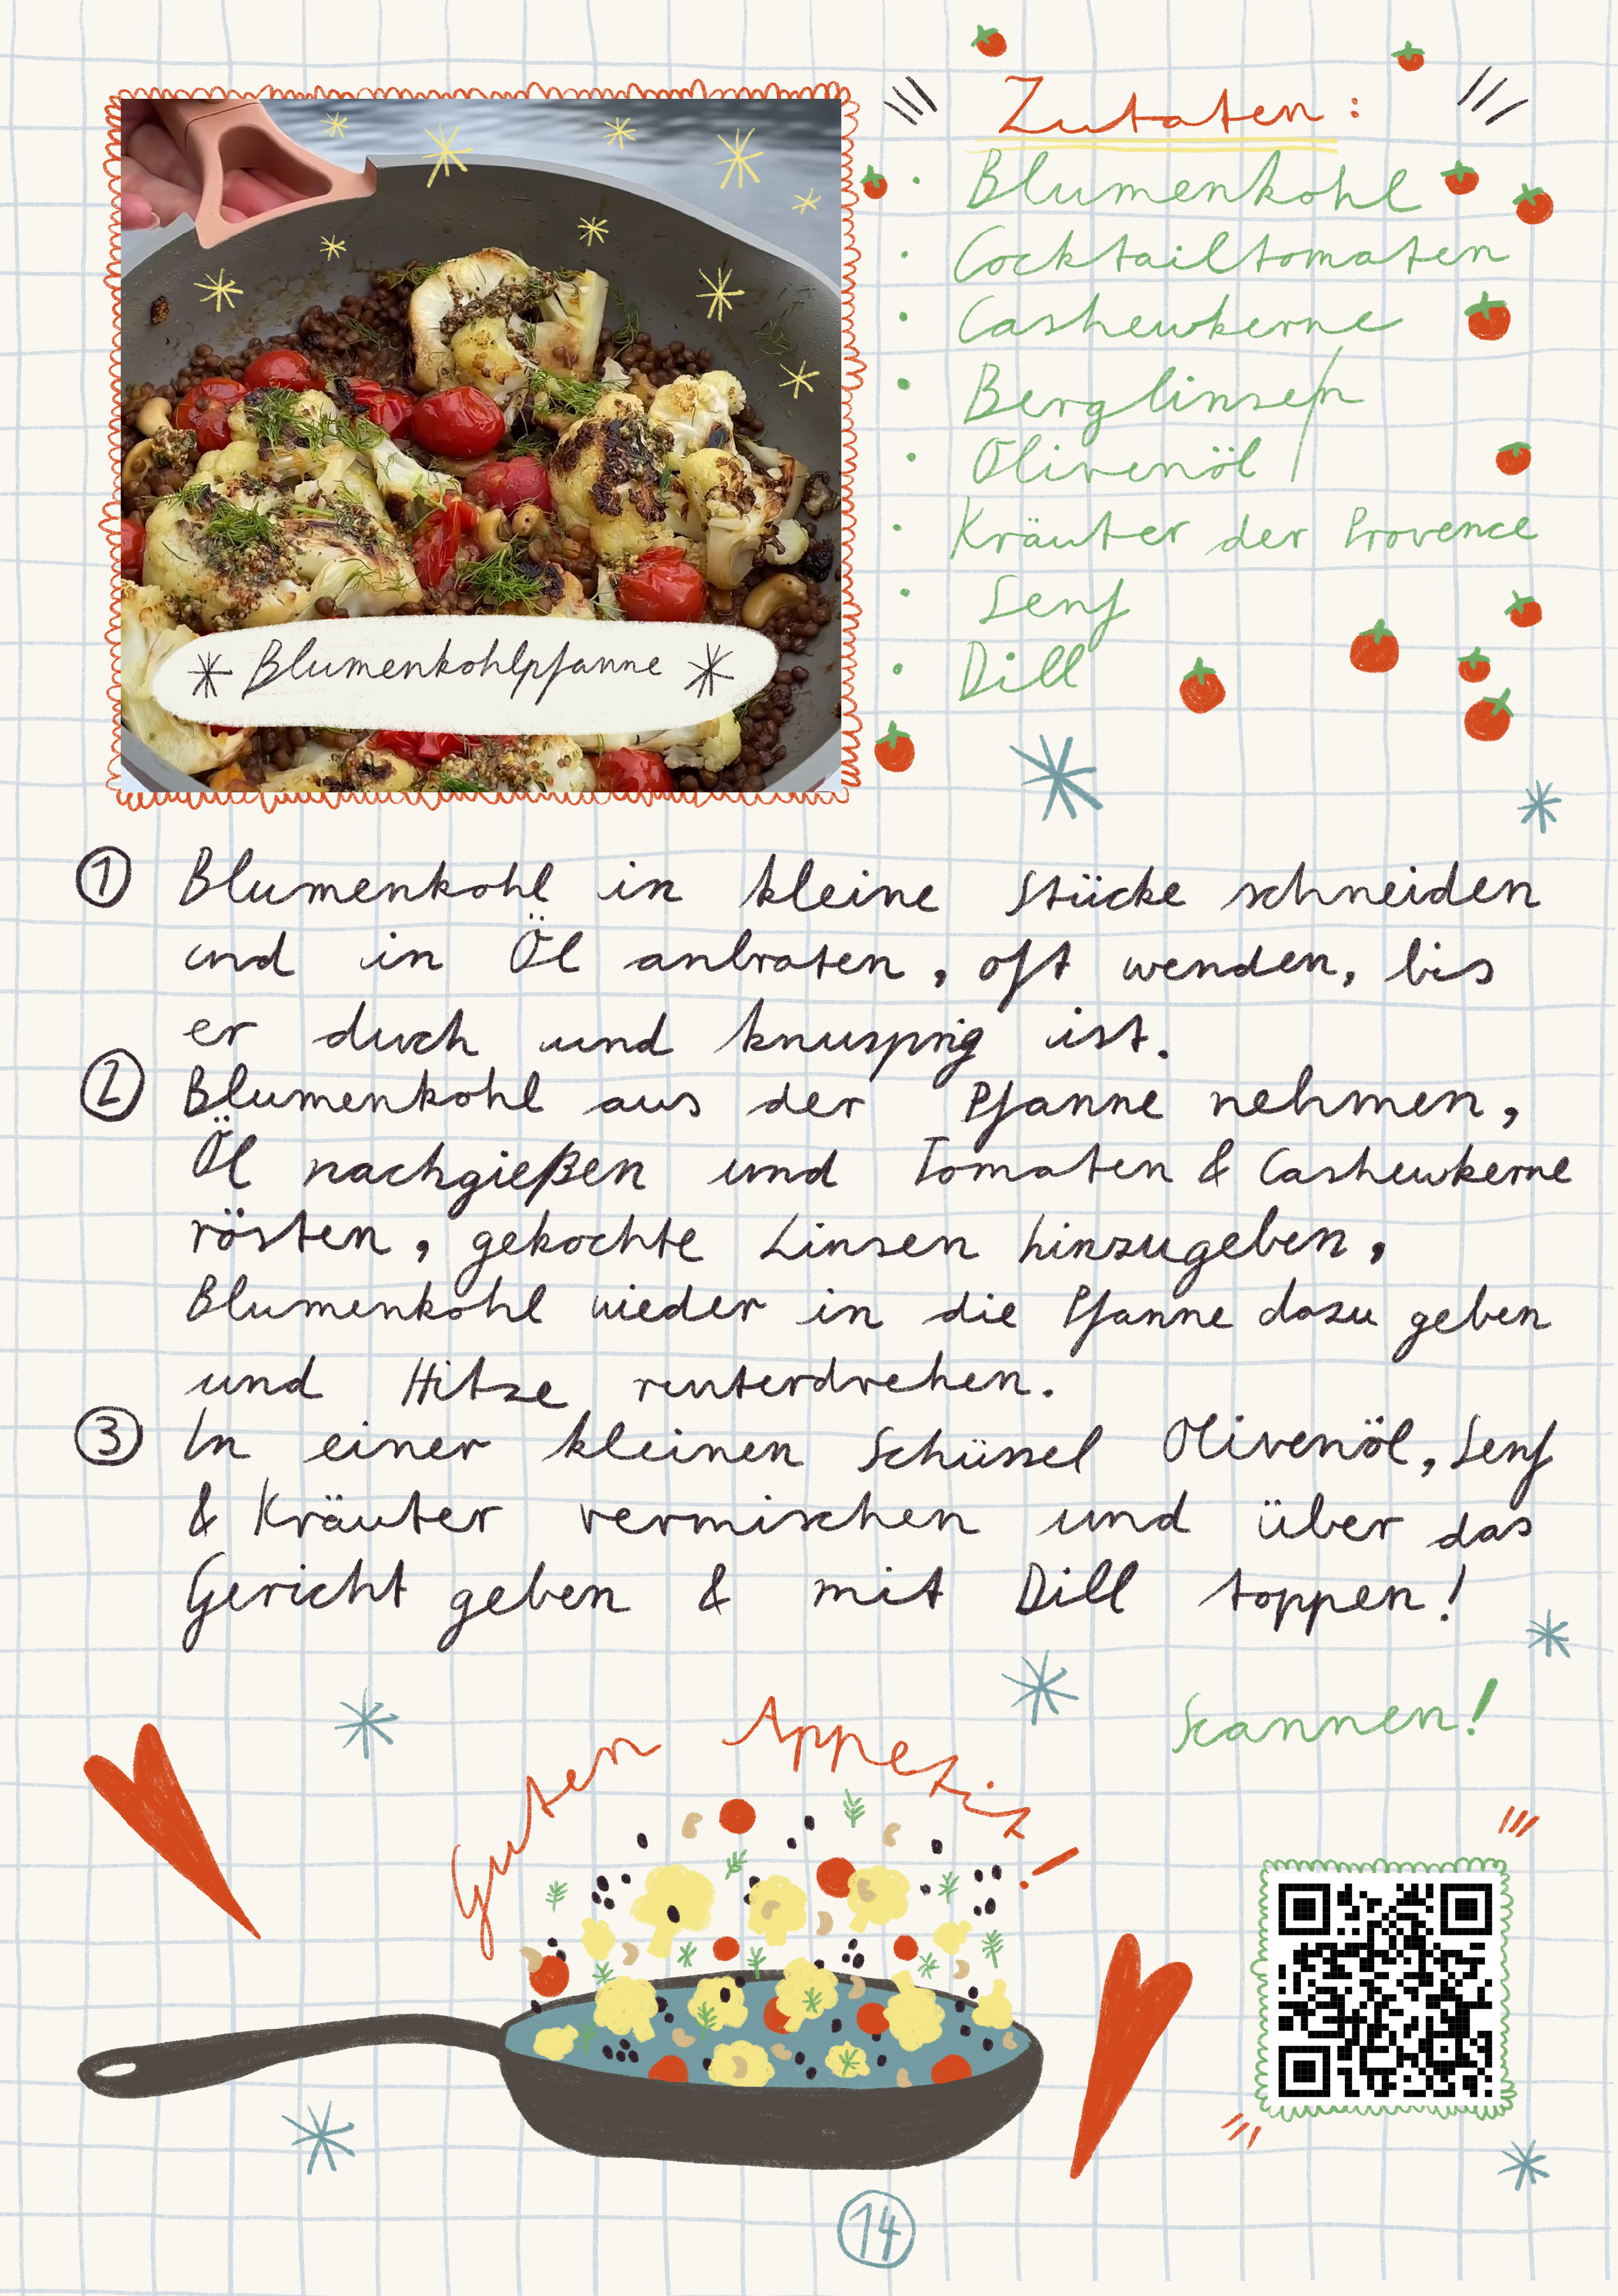 Zutaten:
· Blumenkohl
· Cocktailtomaten
· Cashewkerne
· Berglinsen
· Olivenöl
· Kräuter der Provence
· Senf
· Dill
Blumenkohlpfanne
1 Blumenkohl in kleine Stücke schneiden
und in Öl anbraten, oft wenden, bis
er durch und knusprig ist.
2 Blumenkohl aus der Pfanne nehmen,
Öl nachgießen und Tomaten & Cashewkerne
rösten, gekochte Linsen hinzugeben,
Blumenkohl wieder in die Pfanne dazu geben
und Hitze runterdrehen.
3 In einer kleinen Schüssel Olivenöl, Senf
& Kräuter vermischen und über das
Gericht geben & mit Dill toppen!
Scannen!
Guten Appetit!
14